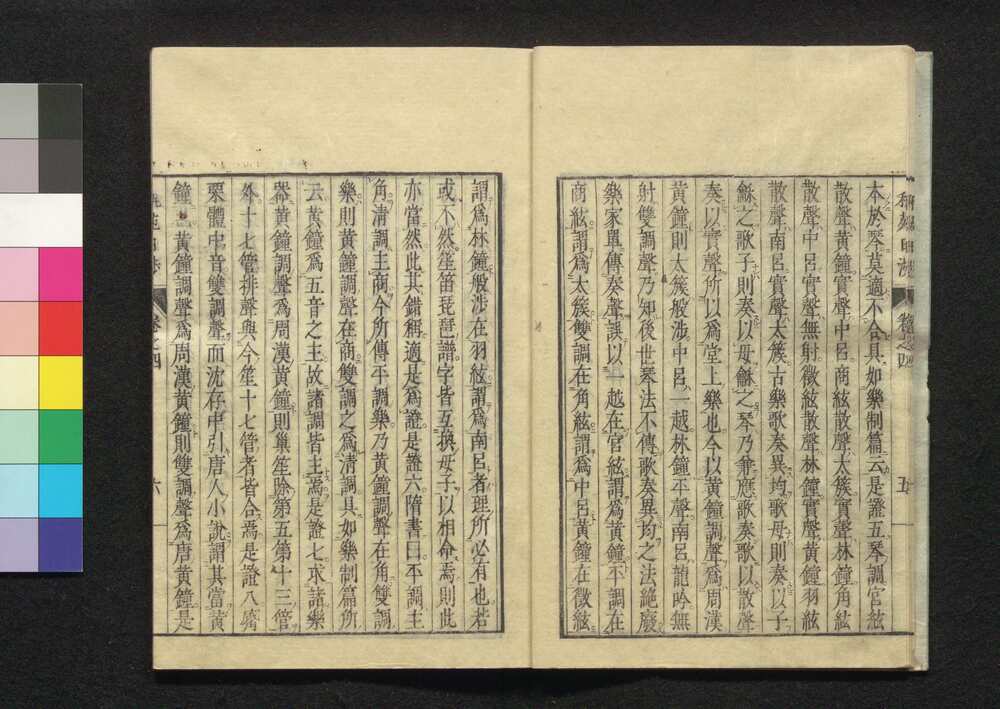 本於琴莫適不合具如樂制篇云是證五琴調宮絃
散聲黃鐘實聲中呂商絃散聲太簇實聲林鐘角絃
散聲中呂實聲無射徵絃散聲林鐘實聲黃鐘羽絃
散聲南呂實聲太簇古樂歌奏異均歌母則奏以子
龢之歌子則奏以母龢之琴乃兼應歌奏歌以散聲
奏以實聲所以爲堂上樂也今以黃鐘調聲爲周漢
黃鐘則太簇般涉中呂一越林鐘平聲南呂龍吟無
射雙調聲乃知後世琴法不傳歌奏異均之法絕廢
樂家單傳奏聲誤以一越在宮絃謂爲黃鐘平調在
商絃謂爲太簇雙調在角絃謂爲中呂黃鐘在徵絃
謂爲林鐘般涉在羽絃謂爲南呂者理所必有也若
或不然笙笛琵琶譜字皆互換母子以相命焉則此
亦當然此其錯稱適是爲證是證六隋書曰平調主
角清調主商今所傳平調樂乃黃鐘調聲在角雙調
樂則黃鐘調聲在商雙調之爲清調具如樂制篇所
云黃鐘爲五音之主故諸調皆主焉是證七求諸樂
器黃鐘調聲爲周漢黃鐘則巢笙除第五第十三管
外十七管排聲與今笙十七管者皆合焉是證八觱
栗體中音雙調聲而沈存中引唐人小說謂其當黃
鐘黃鐘調聲爲周漢黃鐘則雙調聲爲唐黃鐘是
卷之四
五
六